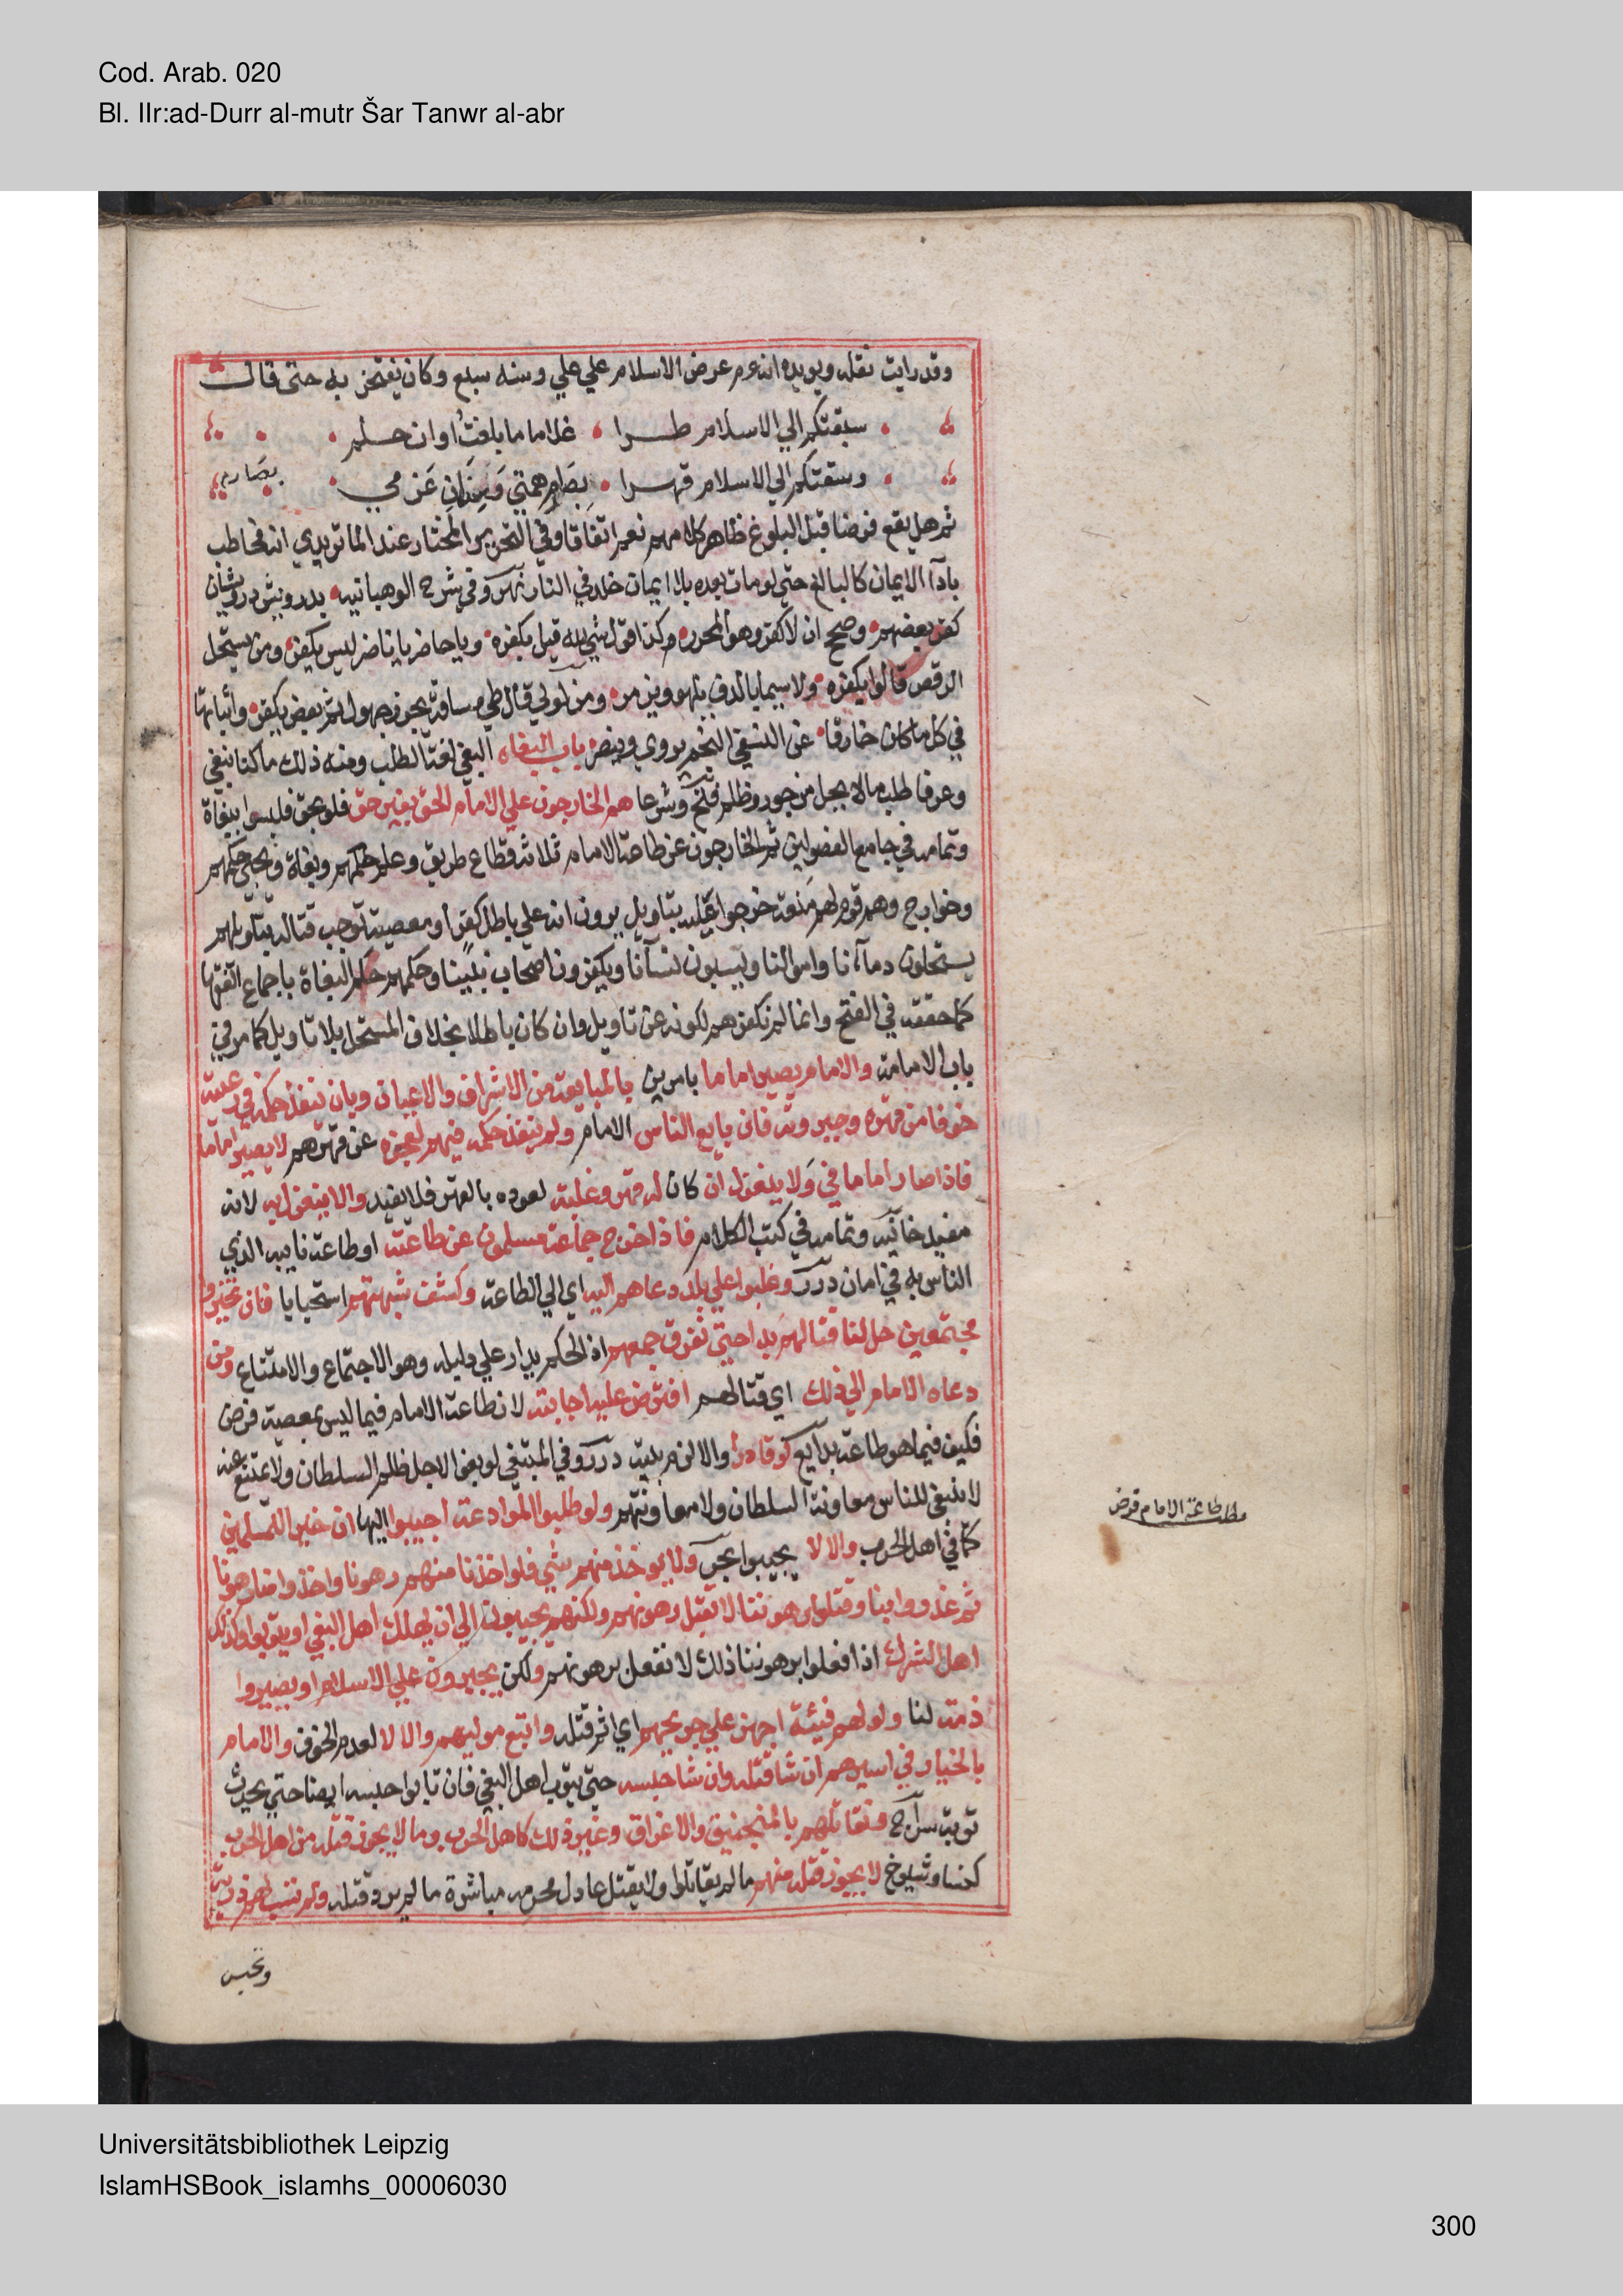 Cod. Arab. 020
Bl. IIr:ad-Durr al-mutr Šar Tanwr al-abr
وقد رايت نقله ويويده انه عم عرض الاسلام علي علي وسنه سبع وكان يفتخر به حتى قال
سبقتكم الي الاسلام طرا غلاما ما بلغت اوان حلم
وسقتكم الي الاسلام قهرا بصارم همتي وسنان عزمي
بصارم
ثم هل يقع فرضا قبل البلوغ ظاهر كلامهم نعم اتفاقا وفي التحرير المختار عند الماتريدي انه مخاطب
بادآ الايمان كالبالغ حتى لو مات بعده بلا ايمان خلد في النار نهر وفي شرح الوهبانيه بدرويش درويشان
كفر بعضهم وصح ان لا كفر وهو المحرر وكذا قول شي لله قيل بكفره ويا حاضر يا ناضر ليس بكفر ومن يستحل
الرقص قالوا بكفره ولا سيما بالدف يلهو ويزمر ومن لولي قال طي مسافة يجوز جهول ثم بعض بكفر واثباتها
في كل ما كان خارقا عن النسفي النجم يروي وينصر باب البغاه البغي لغة الطلب ومنه ذلك ما كنا نبغي
وعرفا طلب مالا يحل من جور وظلم فتح وشرعا هم الخارجون علي الامام الحق بغير حق فلو بحق فليسوا ببغاة
وتمامه في جامع الفصولين ثم الخارجون عن طاعة الامام ثلاثة قطاع طريق وعلم حكمهم وبغاة ويجي حكمهم
وخوارج وهم قوم لهم منعة خرجوا عليه بتاويل يرون انه علي باطل كفر او معصية توجب قتاله بتاويلهم
يستحلون دمآءنا واموالنا ويسبون نسآنا ويكفرون اصحاب نبينا وحكمهم حكم البغاة باجماع الفقها
كما حققه في الفتح وانما لم نكفرهم لكونه عن تاويل وان كان باطلا بخلاف المستحل بلا تاويل كما مر في
باب الامامة والامام يصير اماما بامرين بالمبايعة من الاشراف والاعيان وبان ينفذ حكمه في رعيته
خوفا من قهره وجبروته فان بايع الناس الامام ولم ينفذ حكمه فيهم لعجزه عن قهرهم لا يصير اماما
فاذا صار اماما في ولا ينعزل ان كان له قهر وغلبة لعوده بالقهر فلا يفيد والا ينعزل به لانه
مفيد خانيه وتمامه في كتب الكلام فاذا خرج جماعة مسلمون عن طاعته او طاعة نايبه الذي
الناس به في امان درر وغلبوا علي بلد دعاهم اليه اي الي الطاعة وكشف شبهتهم استحبابا فان تحيزوا
مجتمعين حل لنا قتالهم بدا حتى نفرق جمعهم اذ الحكم يدار علي دليله وهو الاجتماع والامتناع ومن
دعاه الامام الي ذلك اي قتالهم افترض عليه اجابته لان طاعة الامام فيما ليس بمعصية فرض
فكيف فيما هو طاعة بدايع لو قادرا والا لزم بيته درر وفي المبتغي لو بغوا لاجل ظلم السلطان ولا يمتنع عنه
لا ينبغي للناس معاونة السلطان ولا معاونتهم ولو طلبوا الموادعة اجيبوا اليها ان خيرا للمسلمين
كما في اهل الحرب والا لا يجيبوا بحر ولا يوخذ منهم شي فلو اخذنا منهم رهونا واخذوا منا رهونا
ثم غدروا بنا وقتلوا رهوننا لا نقتل رهونهم ولكنهم يحبسون الي ان يهلك اهل البغي او يتوبوا وكذلك
اهل الشرك اذا فعلوا برهوننا ذلك لا نفعل برهونهم ولكن يجبرون علي الاسلام او يصيروا
ذمة لنا ولو لهم فيئة اجهز علي جريحهم اي اتم قتله واتبع موليهم والا لا لعدم الخوف والامام
بالخيار في اسيرهم ان شا قتله وان شا حبسه حتى يتوب اهل البغي فان تابوا حبسه ايضا حتى يحدث
توبة سراج ونقاتلهم بالمنجنيق والاغراق وغير ذلك كاهل الحرب وما لا يجوز قتله من اهل الحرب
كنسا وشيوخ لا يجوز قتله منهم ما لم يقاتلوا ولا يقتل عادل محرمه مباشرة ما لم يرد قتله ولم نسب لهم ذرية
ونحبس
مطلب طاعة الامام فرض
Universitätsbibliothek Leipzig
IslamHSBook_islamhs_00006030
300